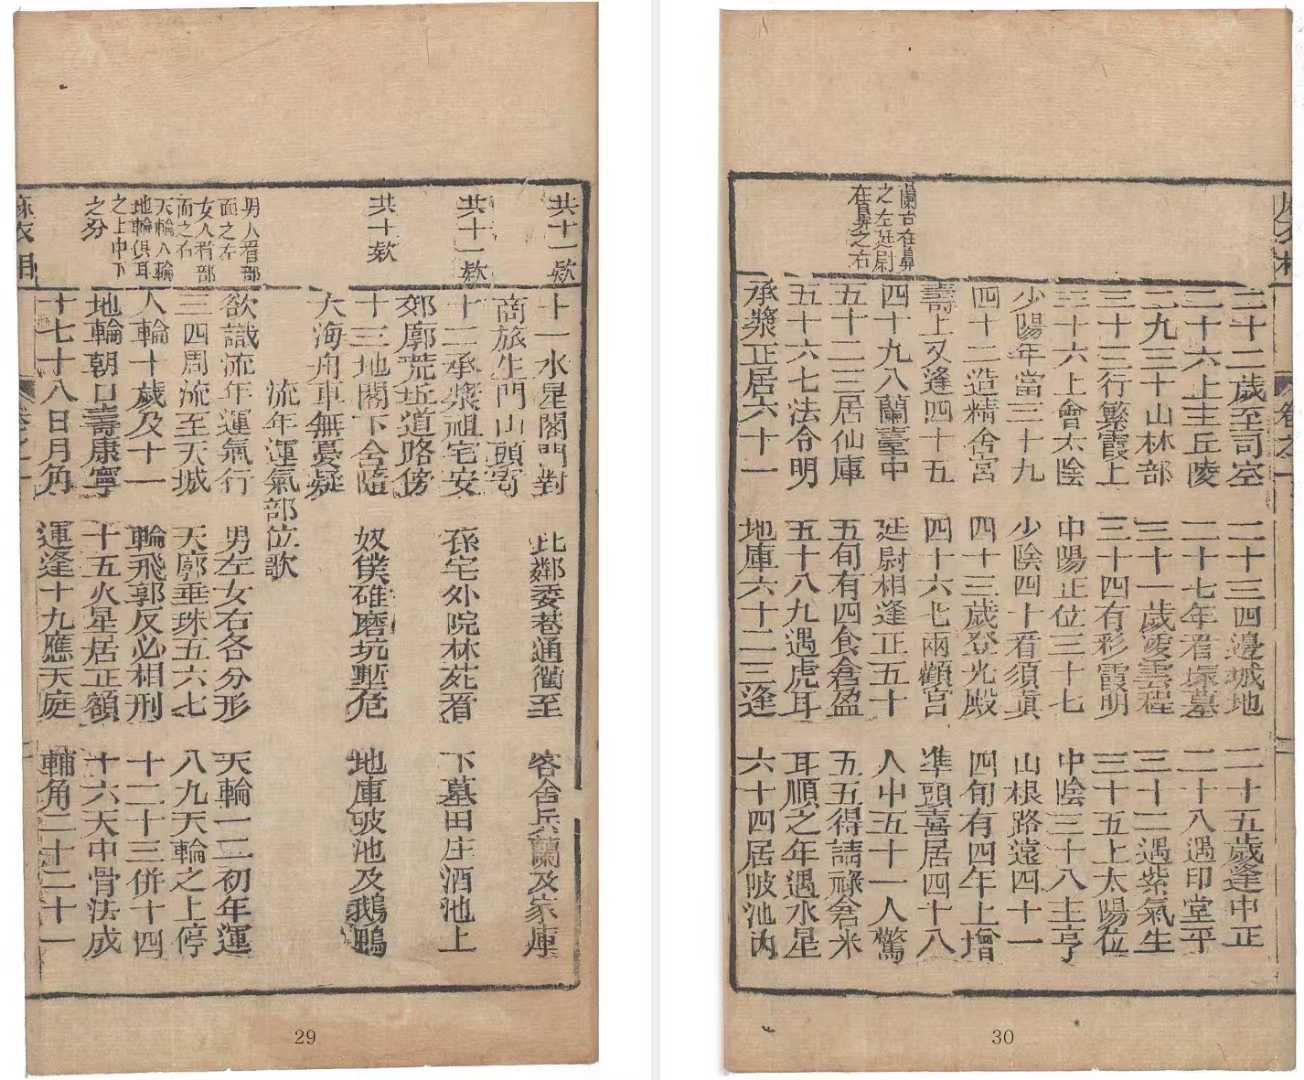 共十一款
共十一款
共十款
男人看部
面之左
女人看部
面之右
天輪人輪
地輪俱耳
之上中下
之分
麻衣相
十一水星閣門對 比鄰委巷通衢至 客舍兵蘭及家庫
商旅生門山頭寄
十二承漿祖宅安 孫宅外院林苑看 下墓田庄酒池上
郊廓荒丘道路傍
十三地閣下舍隨 奴僕碓磨坑塹危 地庫陂池及鵝鴨
大海舟車無憂疑
流年運氣部位歌
欲識流年運氣行 男左女右各分形 天輪一二初年運
三四周流至天城 天廓垂珠五六七 八九天輪之上停
人輪十歲及十一 輪飛郭反必相刑 十二十三併十四
地輪朝口壽康寧 十五火星居正額 十六天中骨法成
十七十八日月角 運逢十九應天庭 輔角二十二十一
29
蘭台在鼻
之左廷尉
在鼻之右
二十二歲至司空 二十三四邊城地 二十五歲逢中正
二十六上主丘陵 二十七年看塚墓 二十八遇印堂平
二九三十山林部 三十一歲凌雲程 三十二遇紫氣生
三十三行繁霞上 三十四有彩霞明 三十五上太陽位
三十六上會太陰 中陽正位三十七 中陰三十八主亨
少陽年當三十九 少陰四十看須真 山根路遠四十一
四十二造精舍宮 四十三歲登光殿 四旬有四年上增
壽上又逢四十五 四十六七兩顴宮 準頭喜居四十八
四十九入蘭臺中 廷尉相逢正五十 人中五十一人驚
五十二三居仙庫 五旬有四食倉盈 五五得請祿倉米
五十六七法令明 五十八九遇虎耳 耳順之年遇水星
承漿正居六十一 地庫六十二三逢 六十四居陂池內
30